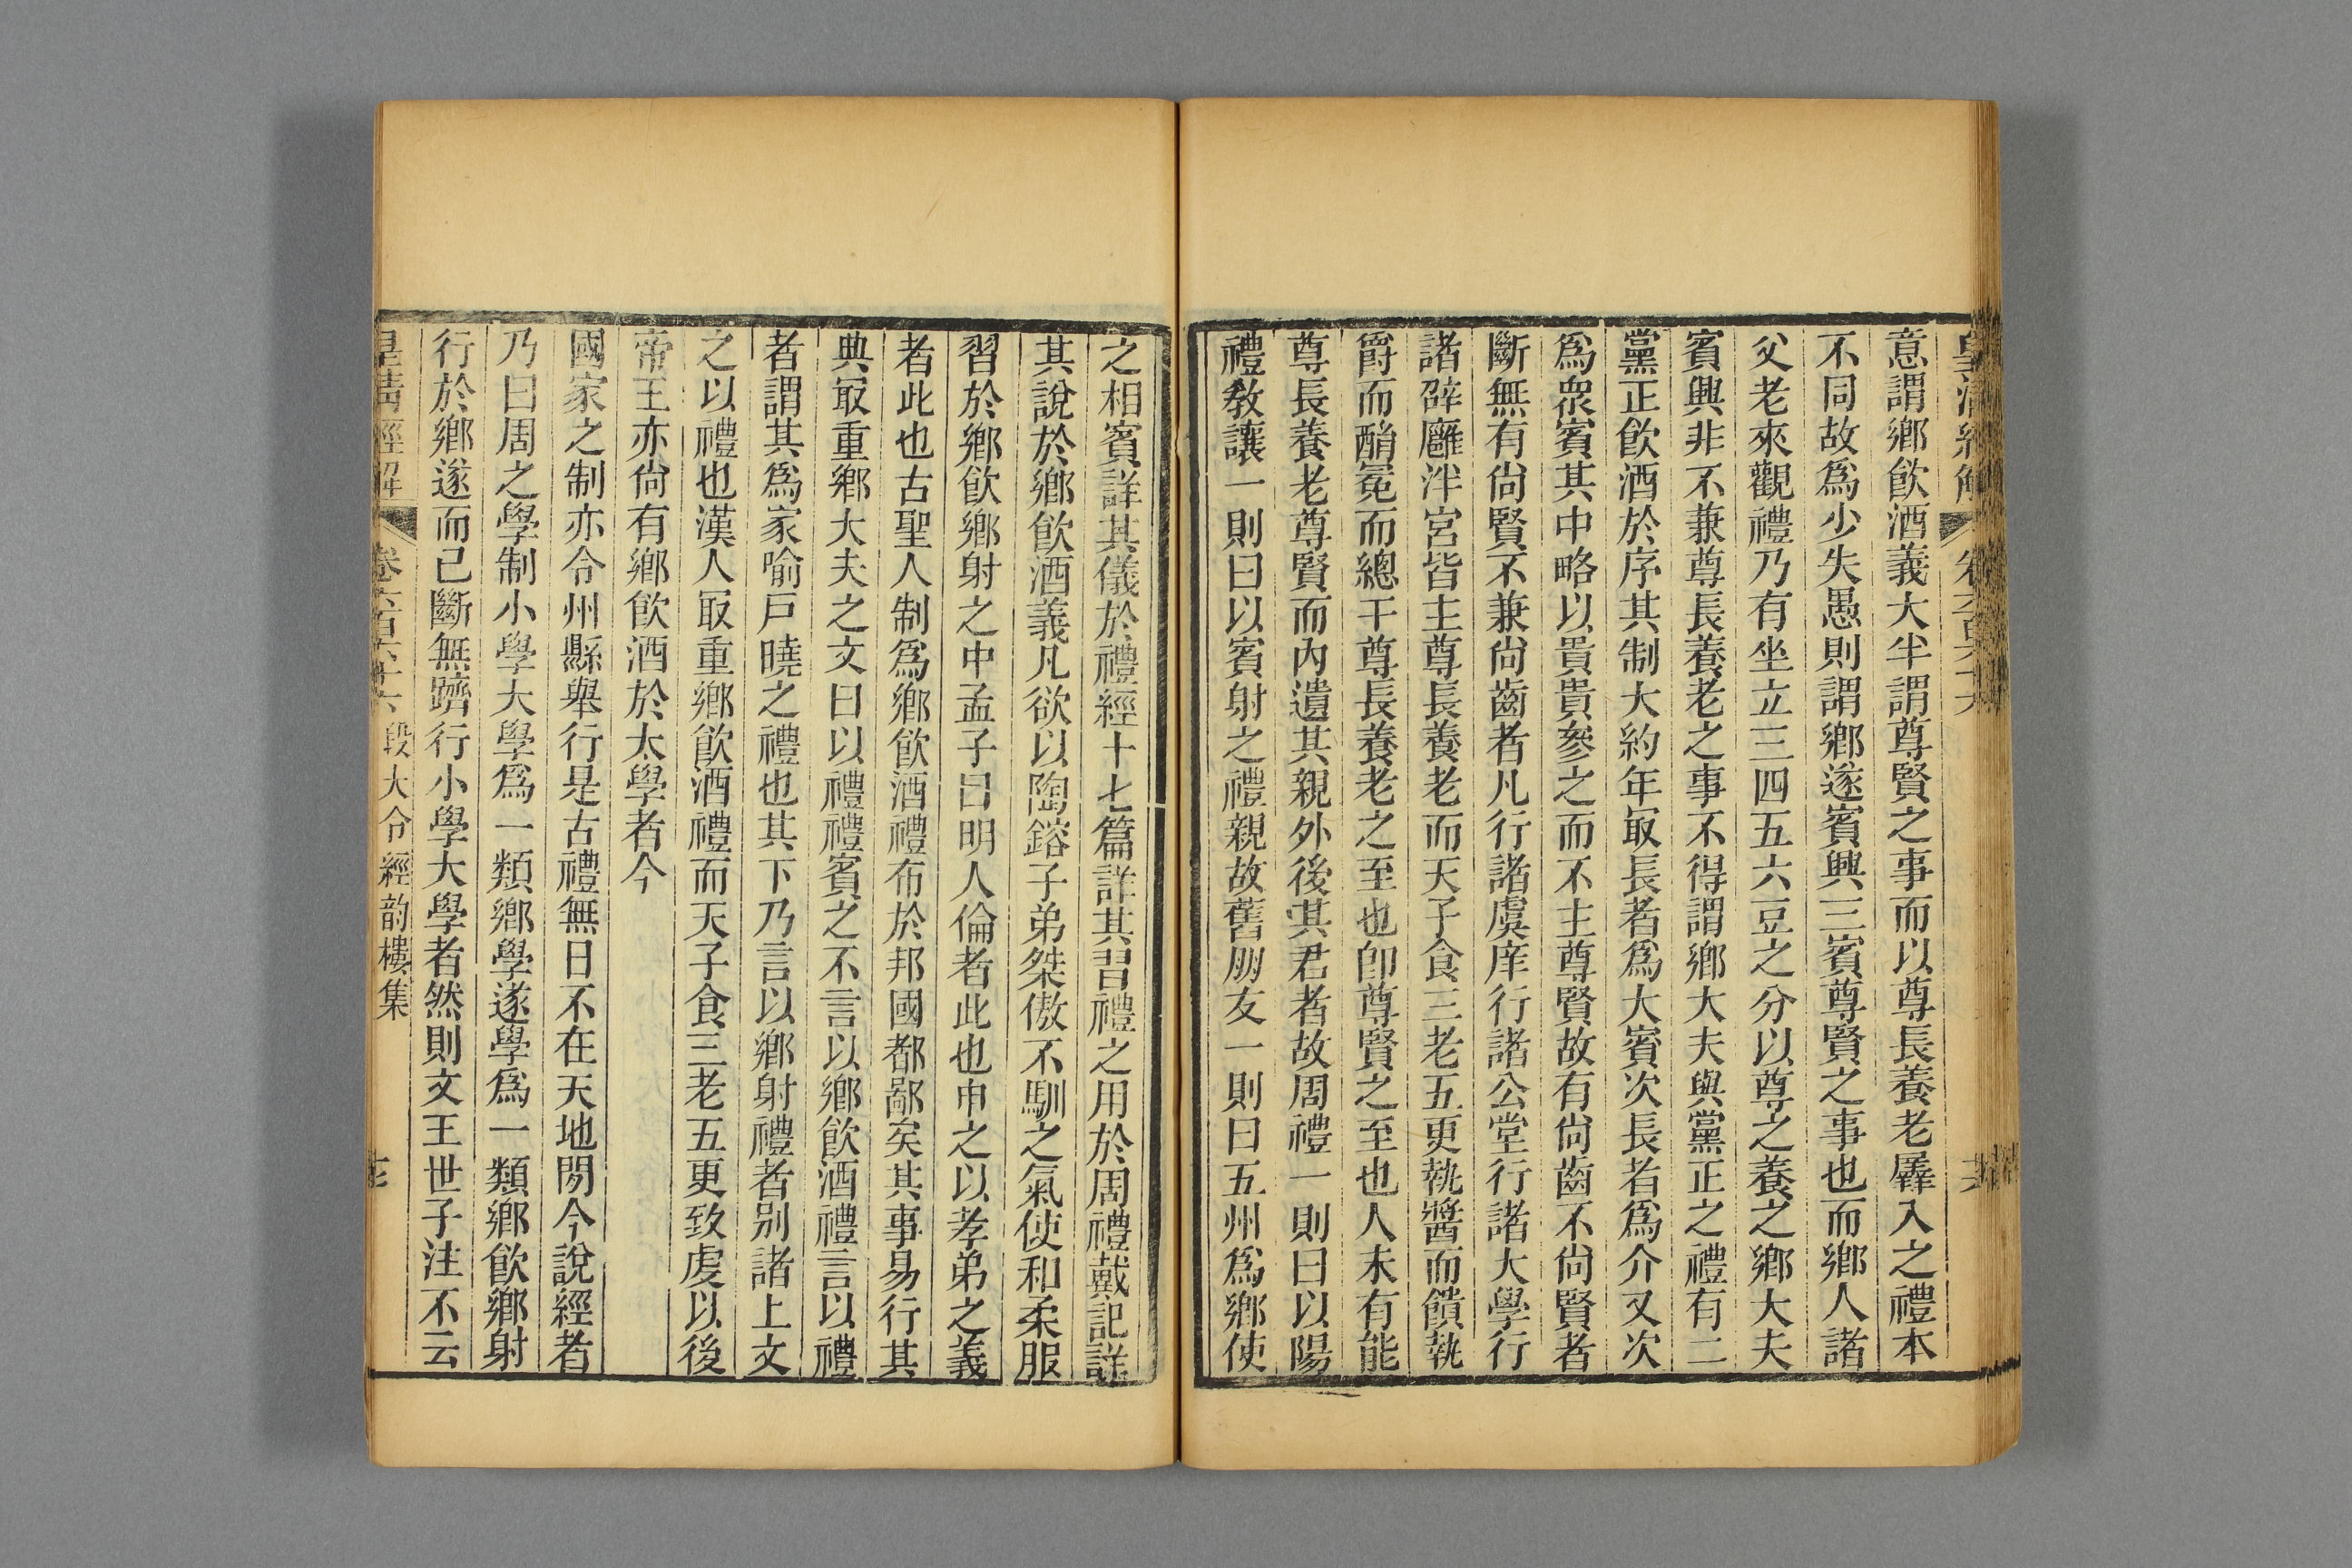 皇淸經解 卷六百六十六 十六
意謂鄉飮酒義大半謂尊賢之事而以尊長養老羼入之禮本
不同故爲少失愚則謂鄉遂賓興三賓尊賢之事也而鄉人諸
父老來觀禮乃有坐立三四五六豆之分以尊之養之鄉大夫
賓興非不兼尊長養老之事不得謂鄉大夫與黨正之禮有二
黨正飮酒於序其制大約年㝡長者爲大賓次長者爲介又次
爲衆賓其中略以貴貴參之而不主尊賢故有尙齒不尙賢者
斷無有尙賢不兼尙齒者凡行諸虞庠行諸公堂行諸大學行
諸辟廱泮宮皆主尊長養老而天子食三老五更執醬而饋執
爵而酳冕而總干尊長養老之至也卽尊賢之至也人未有能
尊長養老尊賢而內遺其親外後其君者故周禮一則曰以陽
禮敎讓一則曰以賓射之禮親故舊朋友一則曰五州爲鄉使
之相賓詳其儀於禮經十七篇詳其習禮之用於周禮戴記詳
其說於鄉飮酒義凡欲以陶鎔子弟桀傲不馴之氣使和柔服
習於鄉飮鄉射之中孟子曰明人倫者此也申之以孝弟之義
者此也古聖人制爲鄉飮酒禮布於邦國都鄙矣其事易行其
典㝡重鄉大夫之文曰以禮禮賓之不言以鄉飮酒禮言以禮
者謂其爲家喻戶曉之禮也其下乃言以鄉射禮者別諸上文
之以禮也漢人㝡重鄉飮酒禮而天子食三老五更致虔以後
帝王亦尙有鄉飮酒於太學者今
國家之制亦令州縣舉行是古禮無日不在天地閒今說經者
乃曰周之學制小學大學爲一類鄉學遂學爲一類鄉飮鄉射
行於鄉遂而已斷無躋行小學大學者然則文王世子注不云
皇淸經解 卷六百六十六 段大令經韵樓集 十七